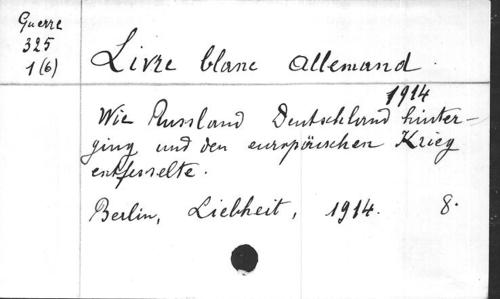 Guerre
325
1(6)
Livre blanc allemand.
1914
Wie Russland Deutschland hinter-
ging und den europäischen Krieg
entfesselte.
Berlin, Liebheit, 1914. 8.